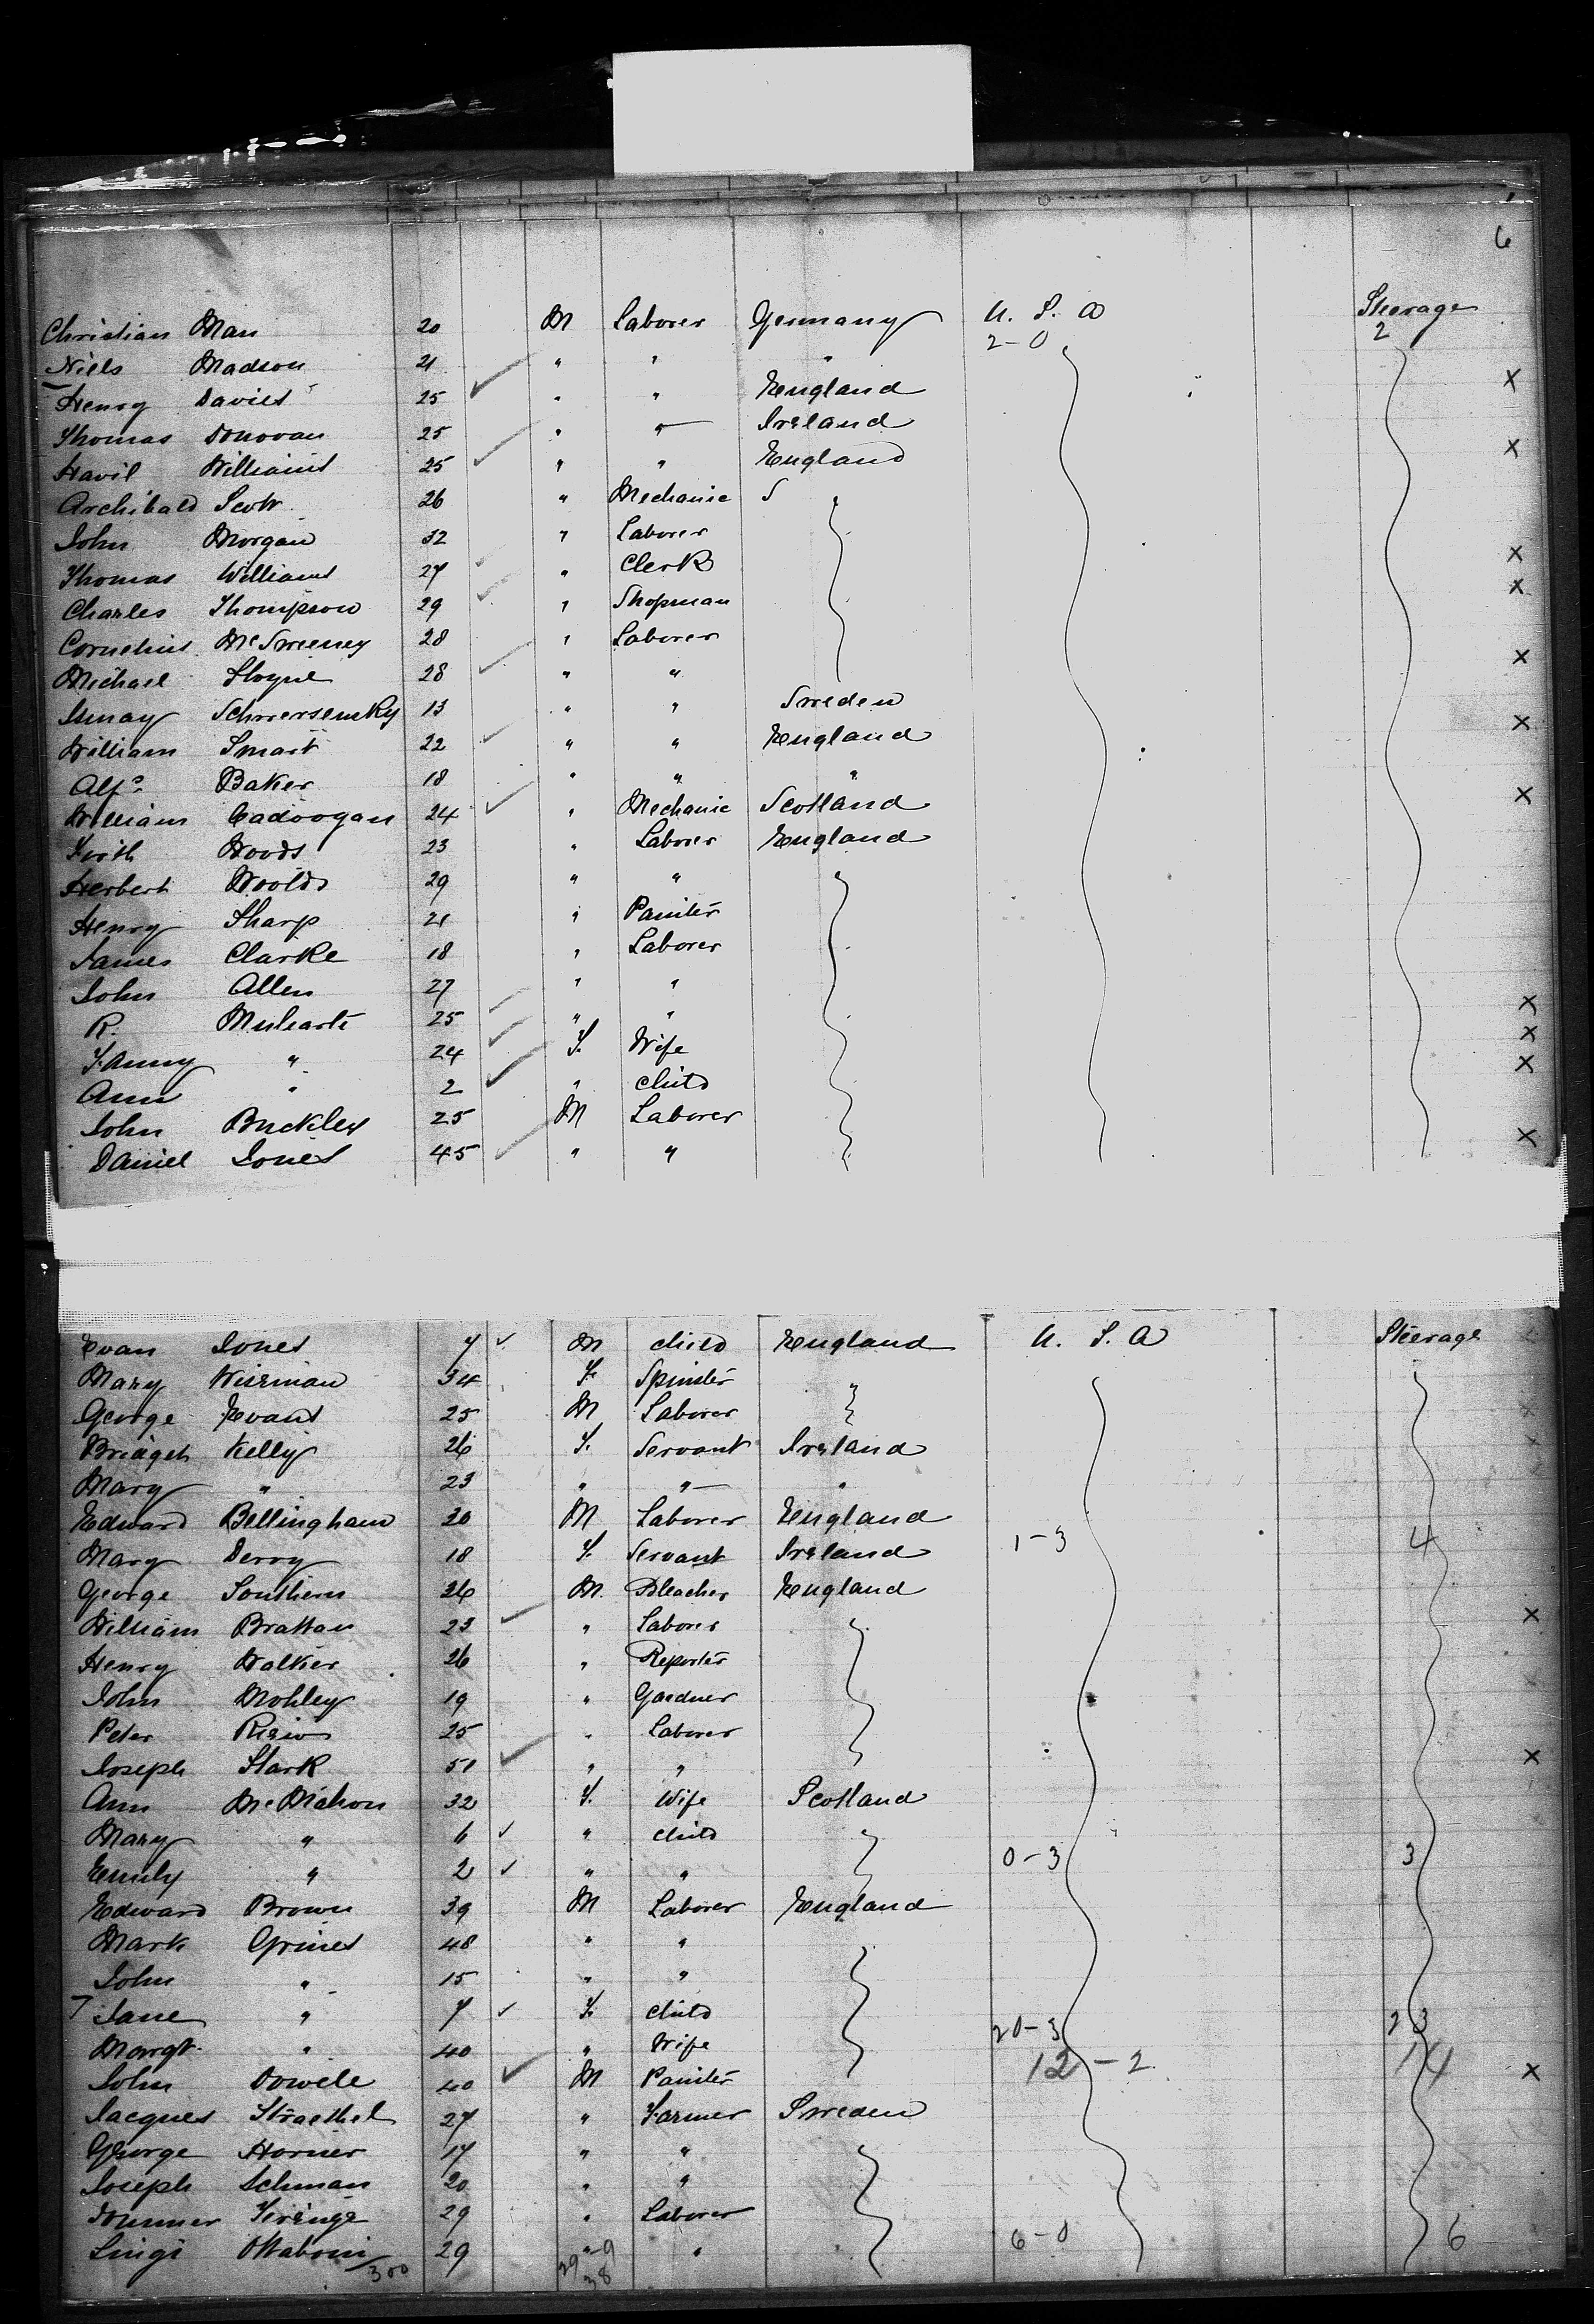 6
Christian Man 20 M Laborer Germany U. S. A Steerage
2-0 2
Niels Madson 21 " " "
Henry Davies 25 " " England X
Thomas Donovan 25 " " Ireland
Williams 25 " " England X
Archibald Scott 26 " Mechanic S
John Morgan 32 " Laborer
Thomas Williams 27 " Clerk X
Charles Thompson 29 " Shopman X
Cornelius McSweeney 28 " Laborer
Michael 28 " " X
13 " " Sweden
William Smart 22 " " England X
Alfd Baker 18 " " "
William Cadoogan 24 " Mechanic Scotland X
Woods 23 " Laborer England
Herbert Woolds 29 " "
Henry Sharp 21 " Painter
James Clarke 18 " Laborer
John Allen 27 " "
R. 25 " " X
Fanny " 24 F. Wife X
Ann " 2 " Child X
John Buckley 25 M Laborer
Daniel Jones 45 " " X
Evan Jones 7 M child England U. S. A Steerage
Mary Wiseman 34 F Spinster "
George Evans 25 M Laborer
Bridget Kelly 26 F. Servant Ireland
Mary " 23 " " "
Edward Bellingham 30 M Laborer England
Mary Derry 18 F. Servant Ireland 1-3 4
George Southern 26 M. Bleacher England
William Brattan 23 " Laborer X
Henry Walker 26 " Reporter
John Mohley 19 " Gardner
Peter 25 " Laborer
Joseph Stark 50 " " X
Ann McMahon 32 F. Wife Scotland
Mary " 6 " Child
Emily " 2 " " 0-3 3
Edward Brown 39 M Laborer England
Mark Grimes 48 " "
John " 15 " "
Jane " 7 F. Child 20-3 23
Margt. " 40 " Wife 12-2 14
John Dowele 40 M Painter X
Jacques 27 " Farmer Sweden
George Horner 17 " "
Joseph 20 " "
29 " Laborer
29 "-9 " 6-0 6
300 29 38